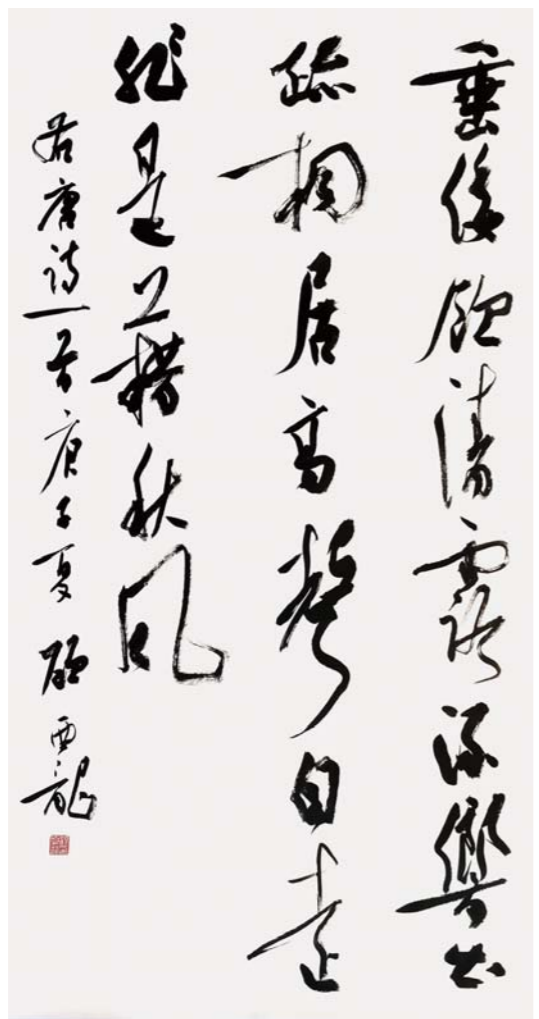 垂緌飲清露流響出
疏桐居高聲自遠
非是藉秋風
右唐詩一首庚子夏 顧亞龍